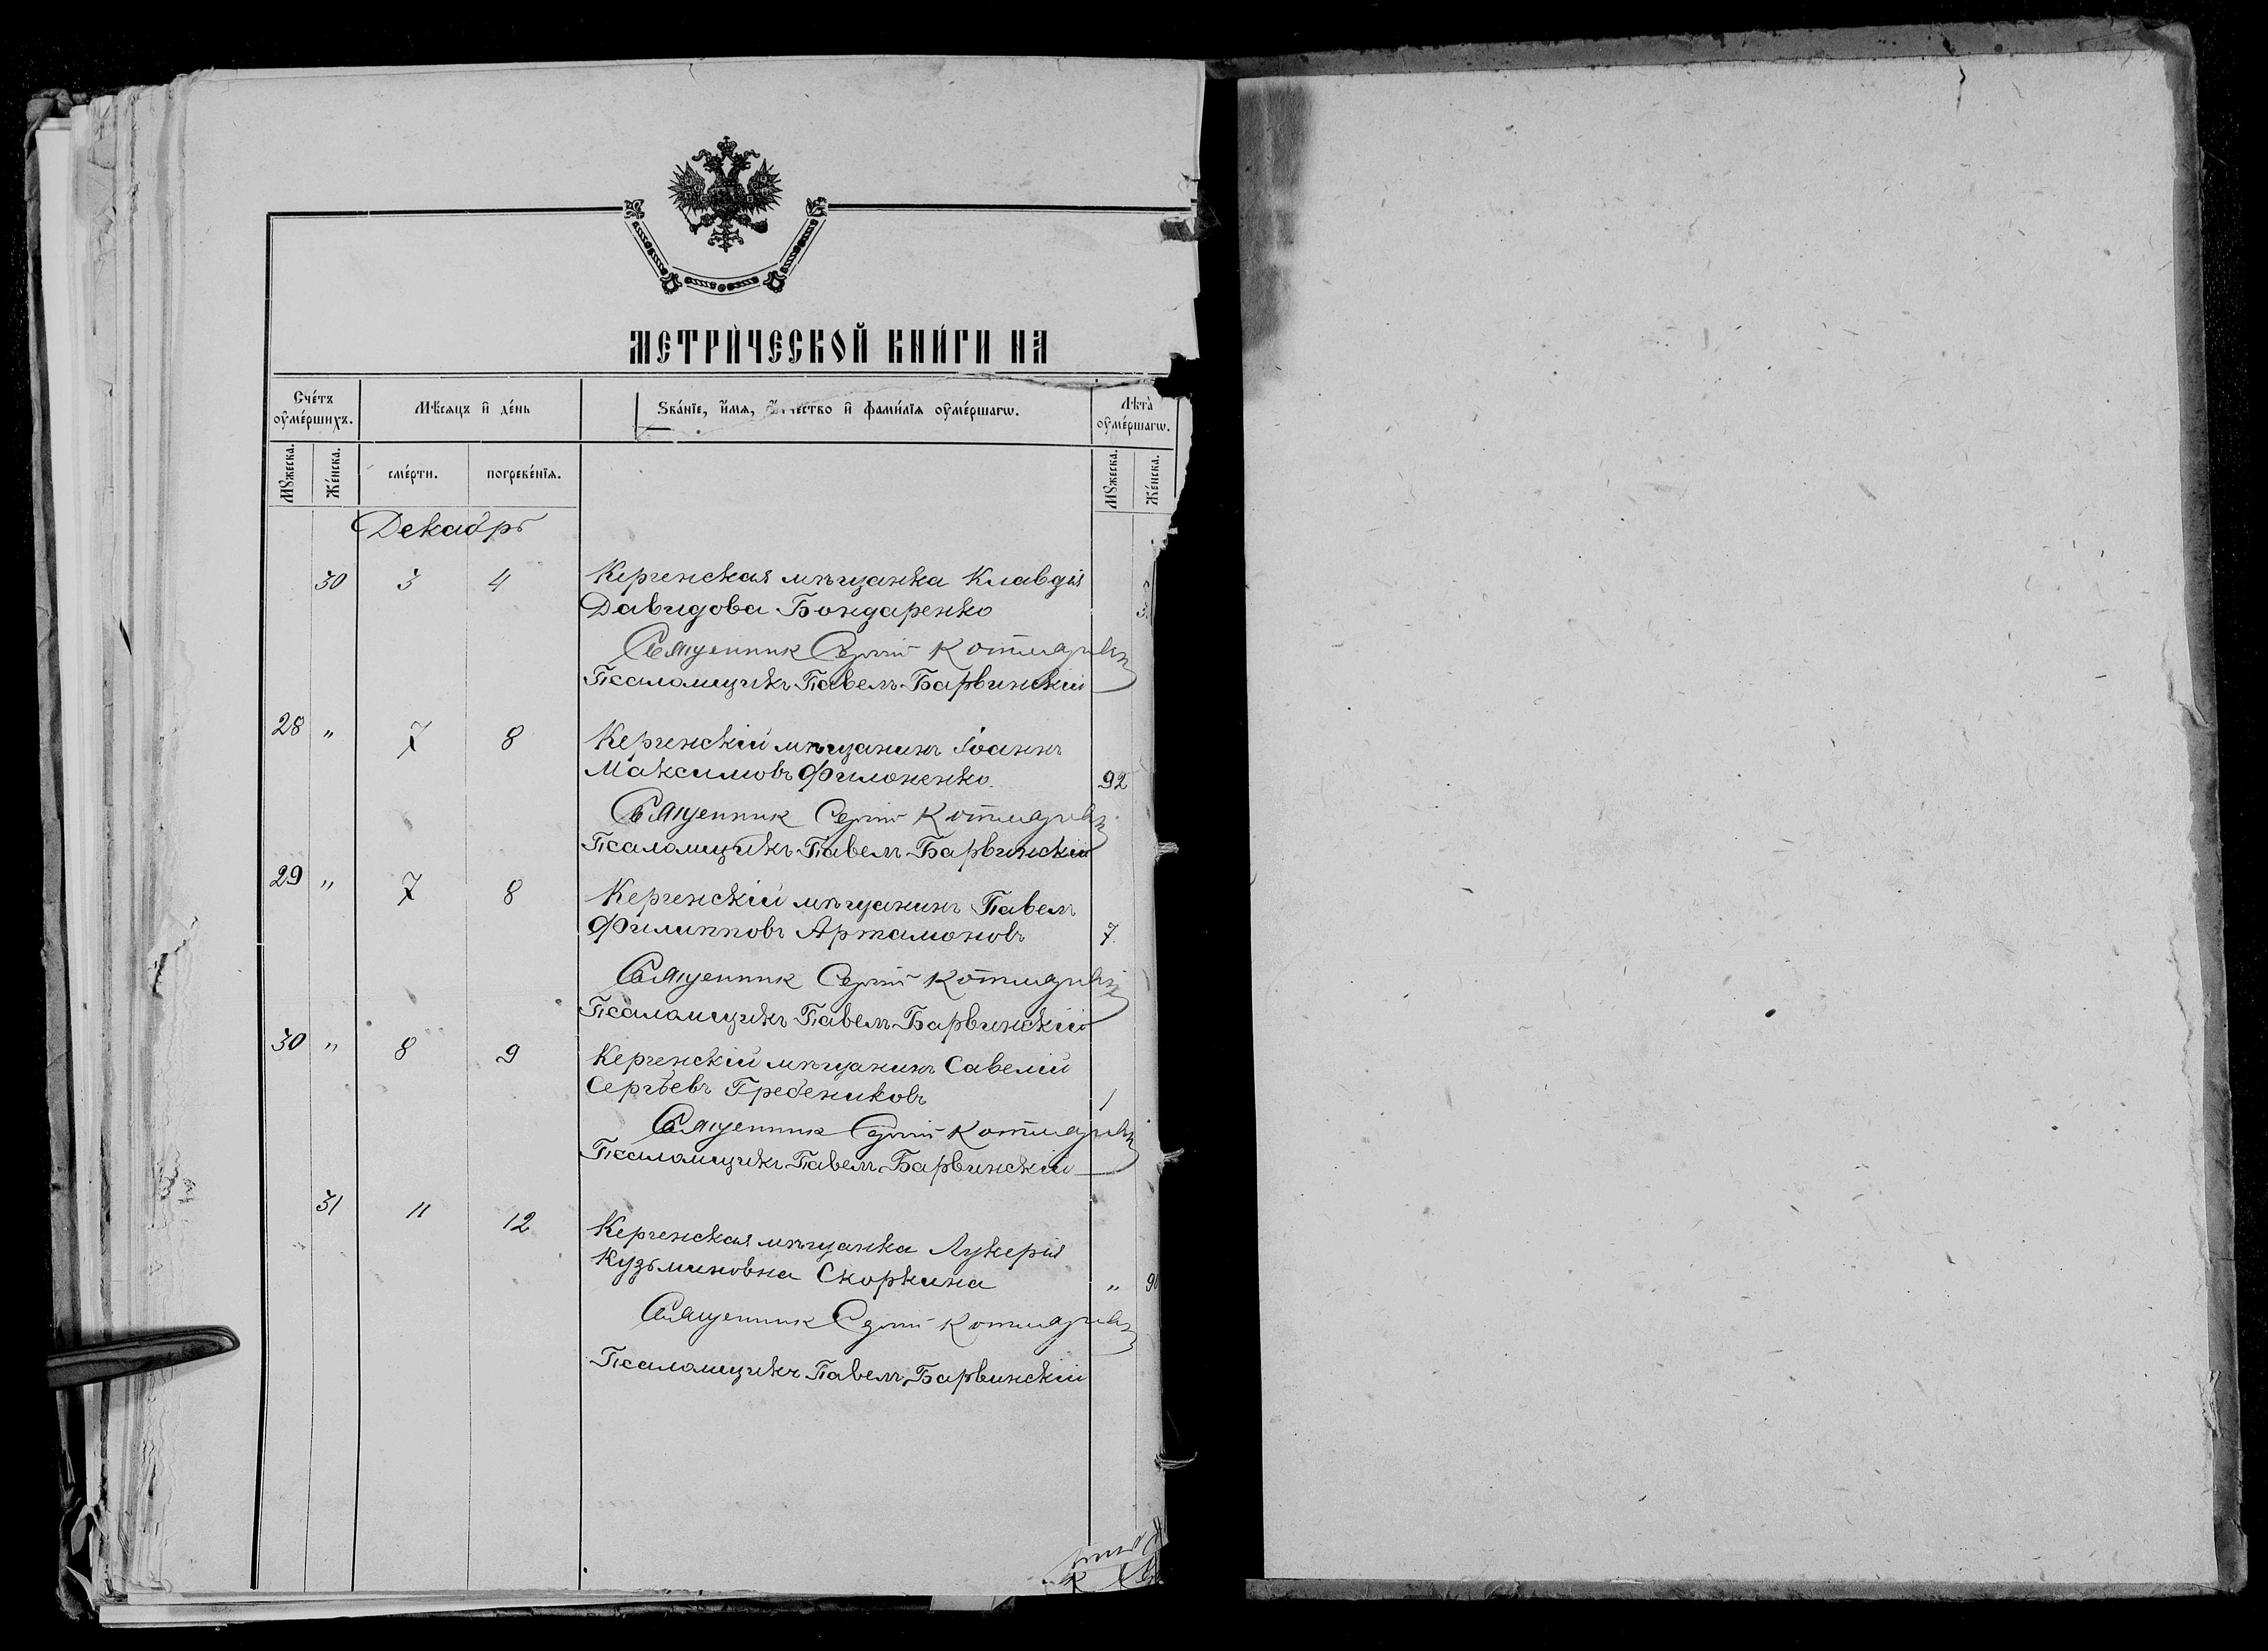 МЕТРИ́ЧЕСКОЙ КНИ́ГИ НА
Сче́тъ оу҆ме́ршихъ.
Мѣ́сяцъ и҆ де́нь
Ѕва́нїе, и҆́мѧ, ѻ҆́тчество и҆ фами́лїѧ оу҆ме́ршагѡ.
Лѣ́та оу҆ме́ршагѡ.
Мꙋ́жеска.
Же́нска.
сме́рти.
погребе́нїѧ.
Мꙋ́жеска.
Же́нска.
Декабрь
30 3 4 Керченская мѣщанка Клавдія
Давидова Бондаренко
Священник Сергій Котляревскій
Псаломщикъ Павелъ Барвинскій
28 " 7 8 Керченскій мѣщанинъ Іоаннъ
Максимовъ Филоненко. 92
Священник Сергій Котляревскій
Псаломщикъ Павелъ Барвинскій
29 " 7 8 Керченскій мѣщанинъ Павелъ
Филипповъ Артамоновъ 7.
Священник Сергій Котляревскій
Псаломщикъ Павелъ Барвинскій
30 " 8 9 Керченскій мѣщанинъ Савелій
Сергѣевъ Гребениковъ 1
Священник Сергій Котляревскій
Псаломщикъ Павелъ Барвинскій
31 11 12 Керченская мѣщанка Лукерія
Кузьминовна Скоркина " 90
Священник Сергій Котляревскій
Псаломщикъ Павелъ Барвинскій